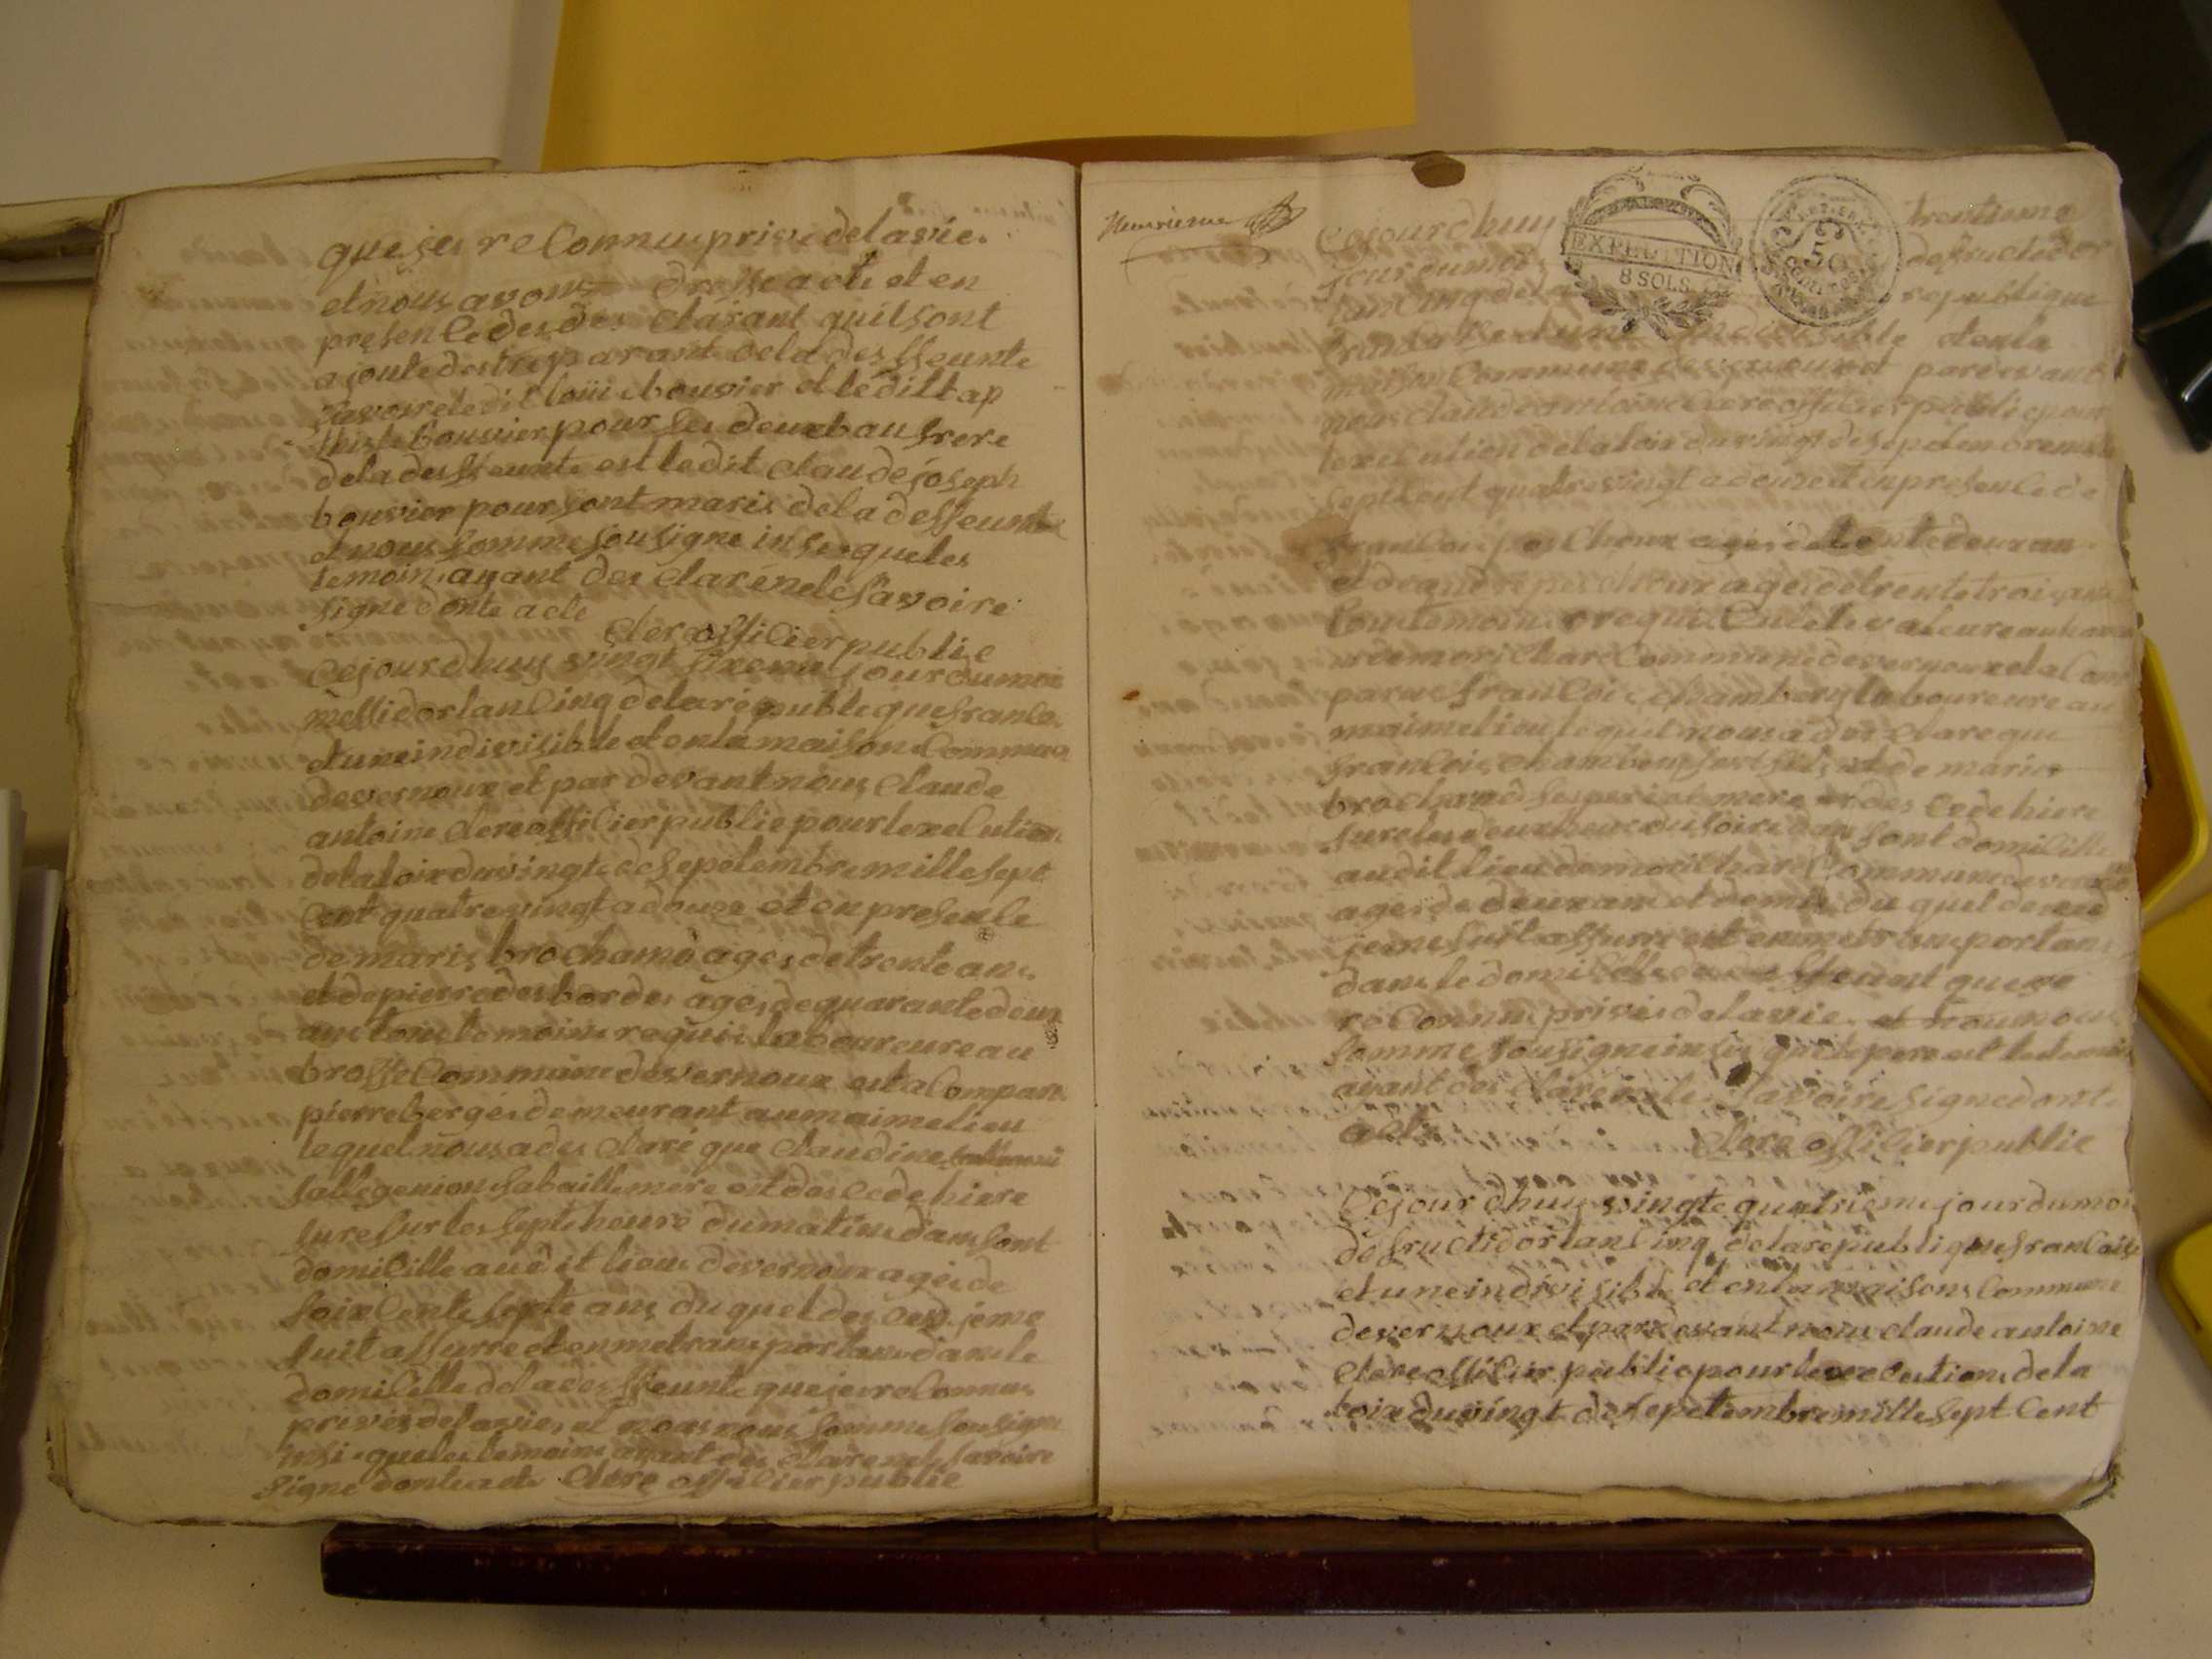 que jei reconnus prive de la vie.
et nous avons dresse acte et en
presence des des clarant quil sont
ajoute destre parant de la desffeunte
savoire ledit loüis bouvier et ledit bap
tiste bouvier pour ses deux bau frere
de la desffeunte est ledit claude joseph
bouvier pour sont maris de la desffeunte
et nous somme sousigne insi que les
temoin ayant des claré ne le savoire
signe donte acte
clere officier public
Cejourdhuy vingt sixeme jour du mois
messidor lan cinq de la republique francai
et une indivisible et en la maison commune
de vernoux et par devant nous claude
antoine clere officier public pour lexecution
de la loix du vingt de sepetembre mille sept
cent quatre vingt adouze et en presence
de maris brochamd ages de trente ans
et de pierre desbordes ages de quarante deux
ans tous temoins requis laboureure au
brosse commune de vernoux est a compare
pierre berges demeurant au maime lieu
lequel nous a des claré que claudine
sa belle mere est des cede hiere
sure sur les septe heure du matin dans sont
domicille au dit lieu de vernoux agés de
soixcente septe ans du quel des ces jeme
suit assurre et en me transportans dans le
domicille de la desffeunte que jei reconnus
privés de la vie, et nous nous somme sousigne
insi que les temoins ayant des clare ne le savoire
signe donte acte clere officier public
EXPEDITION
8 SOLS.
50
Cejourdhuy trentieme
jour du mois de fructidor
lan cinq de la republique
et en la
maison commune de vernoux par devant
nous claude antoine clere officier public pour
lexecution de la loix du vingt de sepetembre mille
sept cent quatre vingt adouze et en presence de
francois perchoux agés de trente deux an
et de andre perchoux ages de trente trois ans
tous temoins requis
a demorichard commune de vernoux et a com
parus francois chambery laboureure au
maime lieu lequel nous a des clare que
francois chambery sont fils et de marie
brochand ses pere et mere des cede hiere
sure les deux heure du soire dans sont domicille
audit lieu demorichard commune de vernoux
ages de deux ans et demis du quel deces
jeme suit assurre et en me transportans
dans le domicille du desffeunt que jei
reconnus privés de la vie. et nous nous
somme sousigne insi que le pere et les temoins
ayant des claré ne le savoire signe dont
acte
clere officier public
Cejour dhuy vingte quatrieme jour du mois
de fructidor lan cinq de la republique francaise
et une indivisible et en la maisons commune
de vernoux et par devant nous claude antoine
clere officier public pour lexecution de la
loix du vingt de sepetembre mille sept cent